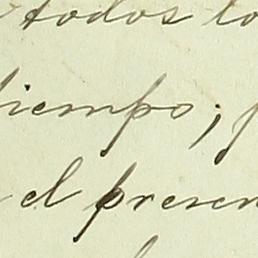 todos lo
tiempo; p
el presen